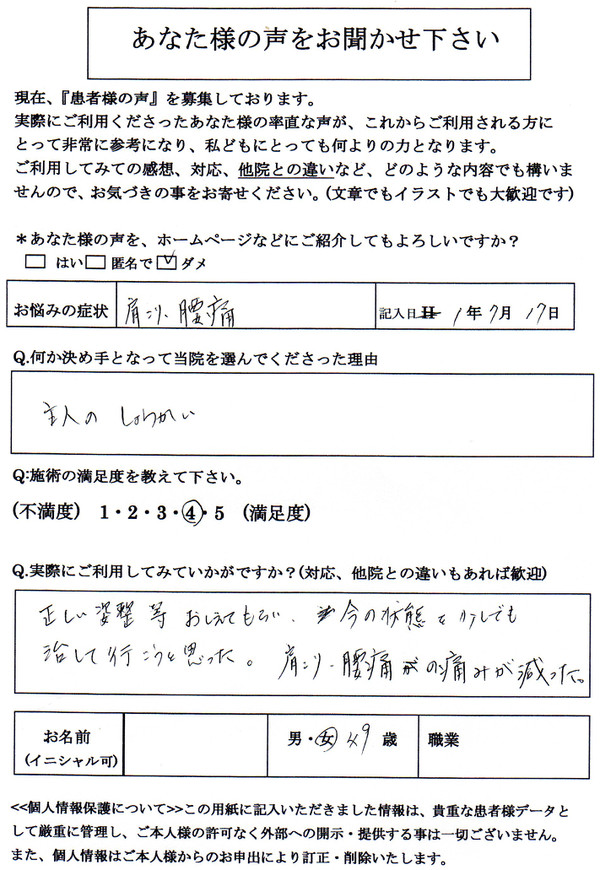 あなた様の声をお聞かせ下さい
現在、『患者様の声』を募集しております。
実際にご利用くださったあなた様の率直な声が、これからご利用される方に
とって非常に参考になり、私どもにとっても何よりの力となります。
ご利用してみての感想、対応、他院との違いなど、どのような内容でも構いま
せんので、お気づきの事をお寄せください。(文章でもイラストでも大歓迎です)
＊あなた様の声を、ホームページなどにご紹介してもよろしいですか？
□ はい □ 匿名で ☑ ダメ
お悩みの症状 肩こり、腰痛 記入日 H 1年7月17日
Q.何か決め手となって当院を選んでくださった理由
主人の しょうかい
Q:施術の満足度を教えて下さい。
(不満度) 1・2・3・④・5 (満足度)
Q.実際にご利用してみていかがですか？(対応、他院との違いもあれば歓迎)
正しい姿整等 おしえてもらい、今の状態を少しでも
治して行こうと思った。肩こり、腰痛の痛みが減った。
お名前 男・女 49 歳 職業
(イニシャル可)
<<個人情報保護について>>この用紙に記入いただきました情報は、貴重な患者様データと
して厳重に管理し、ご本人様の許可なく外部への開示・提供する事は一切ございません。
また、個人情報はご本人様からのお申出により訂正・削除いたします。